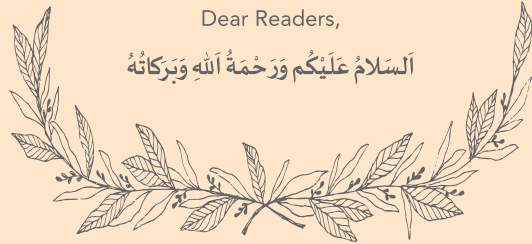 Dear Readers,
اَلسَلامُ عَلَيْكُم وَرَحْمَةُ اَللهِ وَبَرَكاتُهُ